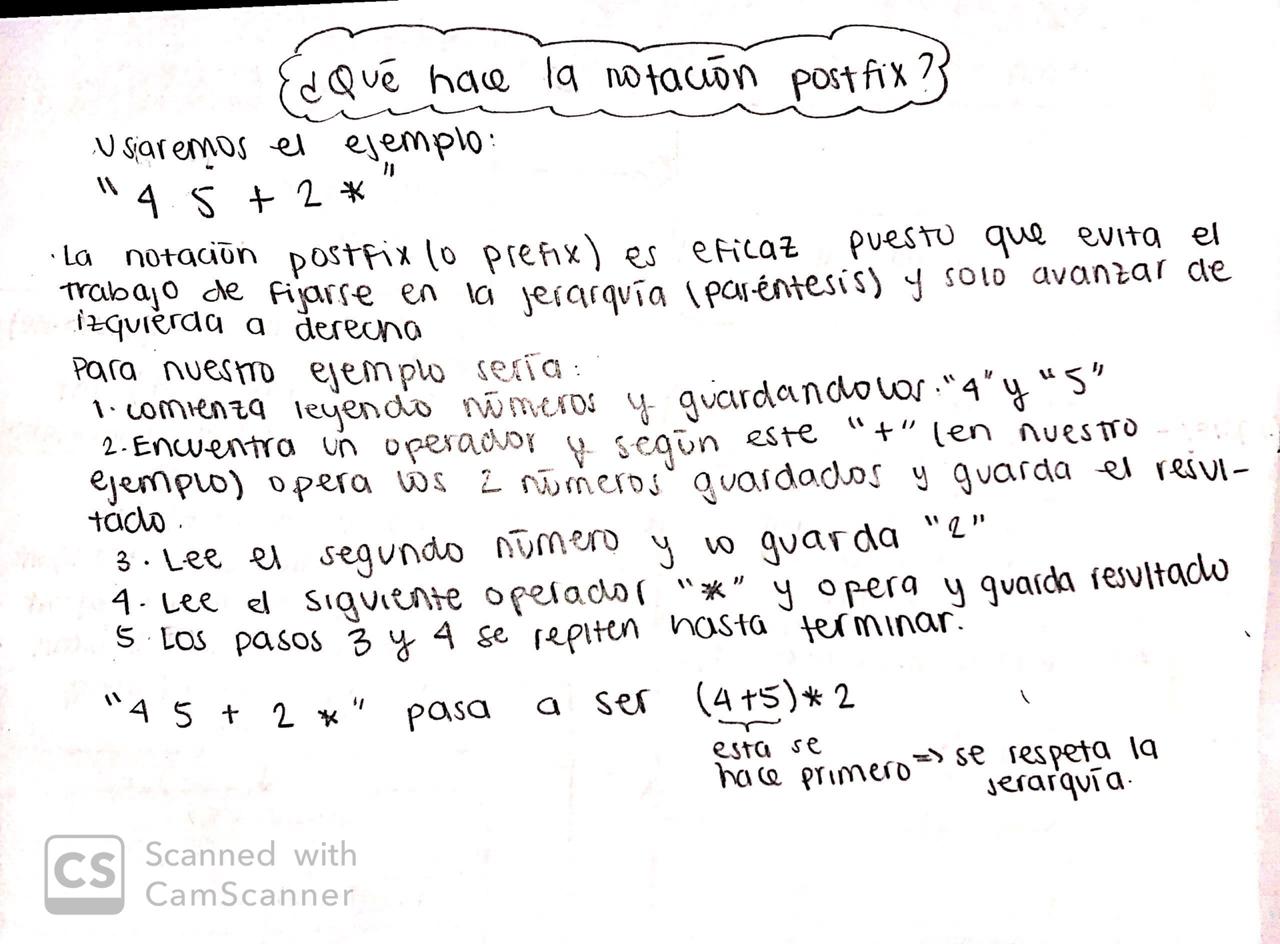 ¿Qué hace la notación postfix?
Usaremos el ejemplo:
"4 5 + 2 *"
La notación postfix (o prefix) es eficaz puesto que evita el
trabajo de fijarse en la jerarquía (paréntesis) y solo avanzar de
izquierda a derecha
Para nuestro ejemplo sería:
1. comienza leyendo números y guardandolos. "4" y "5"
2. Encuentra un operador y según este "+" (en nuestro
ejemplo) opera los 2 números guardados y guarda el resul-
tado.
3. Lee el segundo número y lo guarda "2"
4. Lee el siguiente operador "*" y opera y guarda resultado
5. Los pasos 3 y 4 se repiten hasta terminar.
"4 5 + 2 *" pasa a ser (4+5)*2
esta se
hace primero => se respeta la
jerarquía.
CS Scanned with
CamScanner